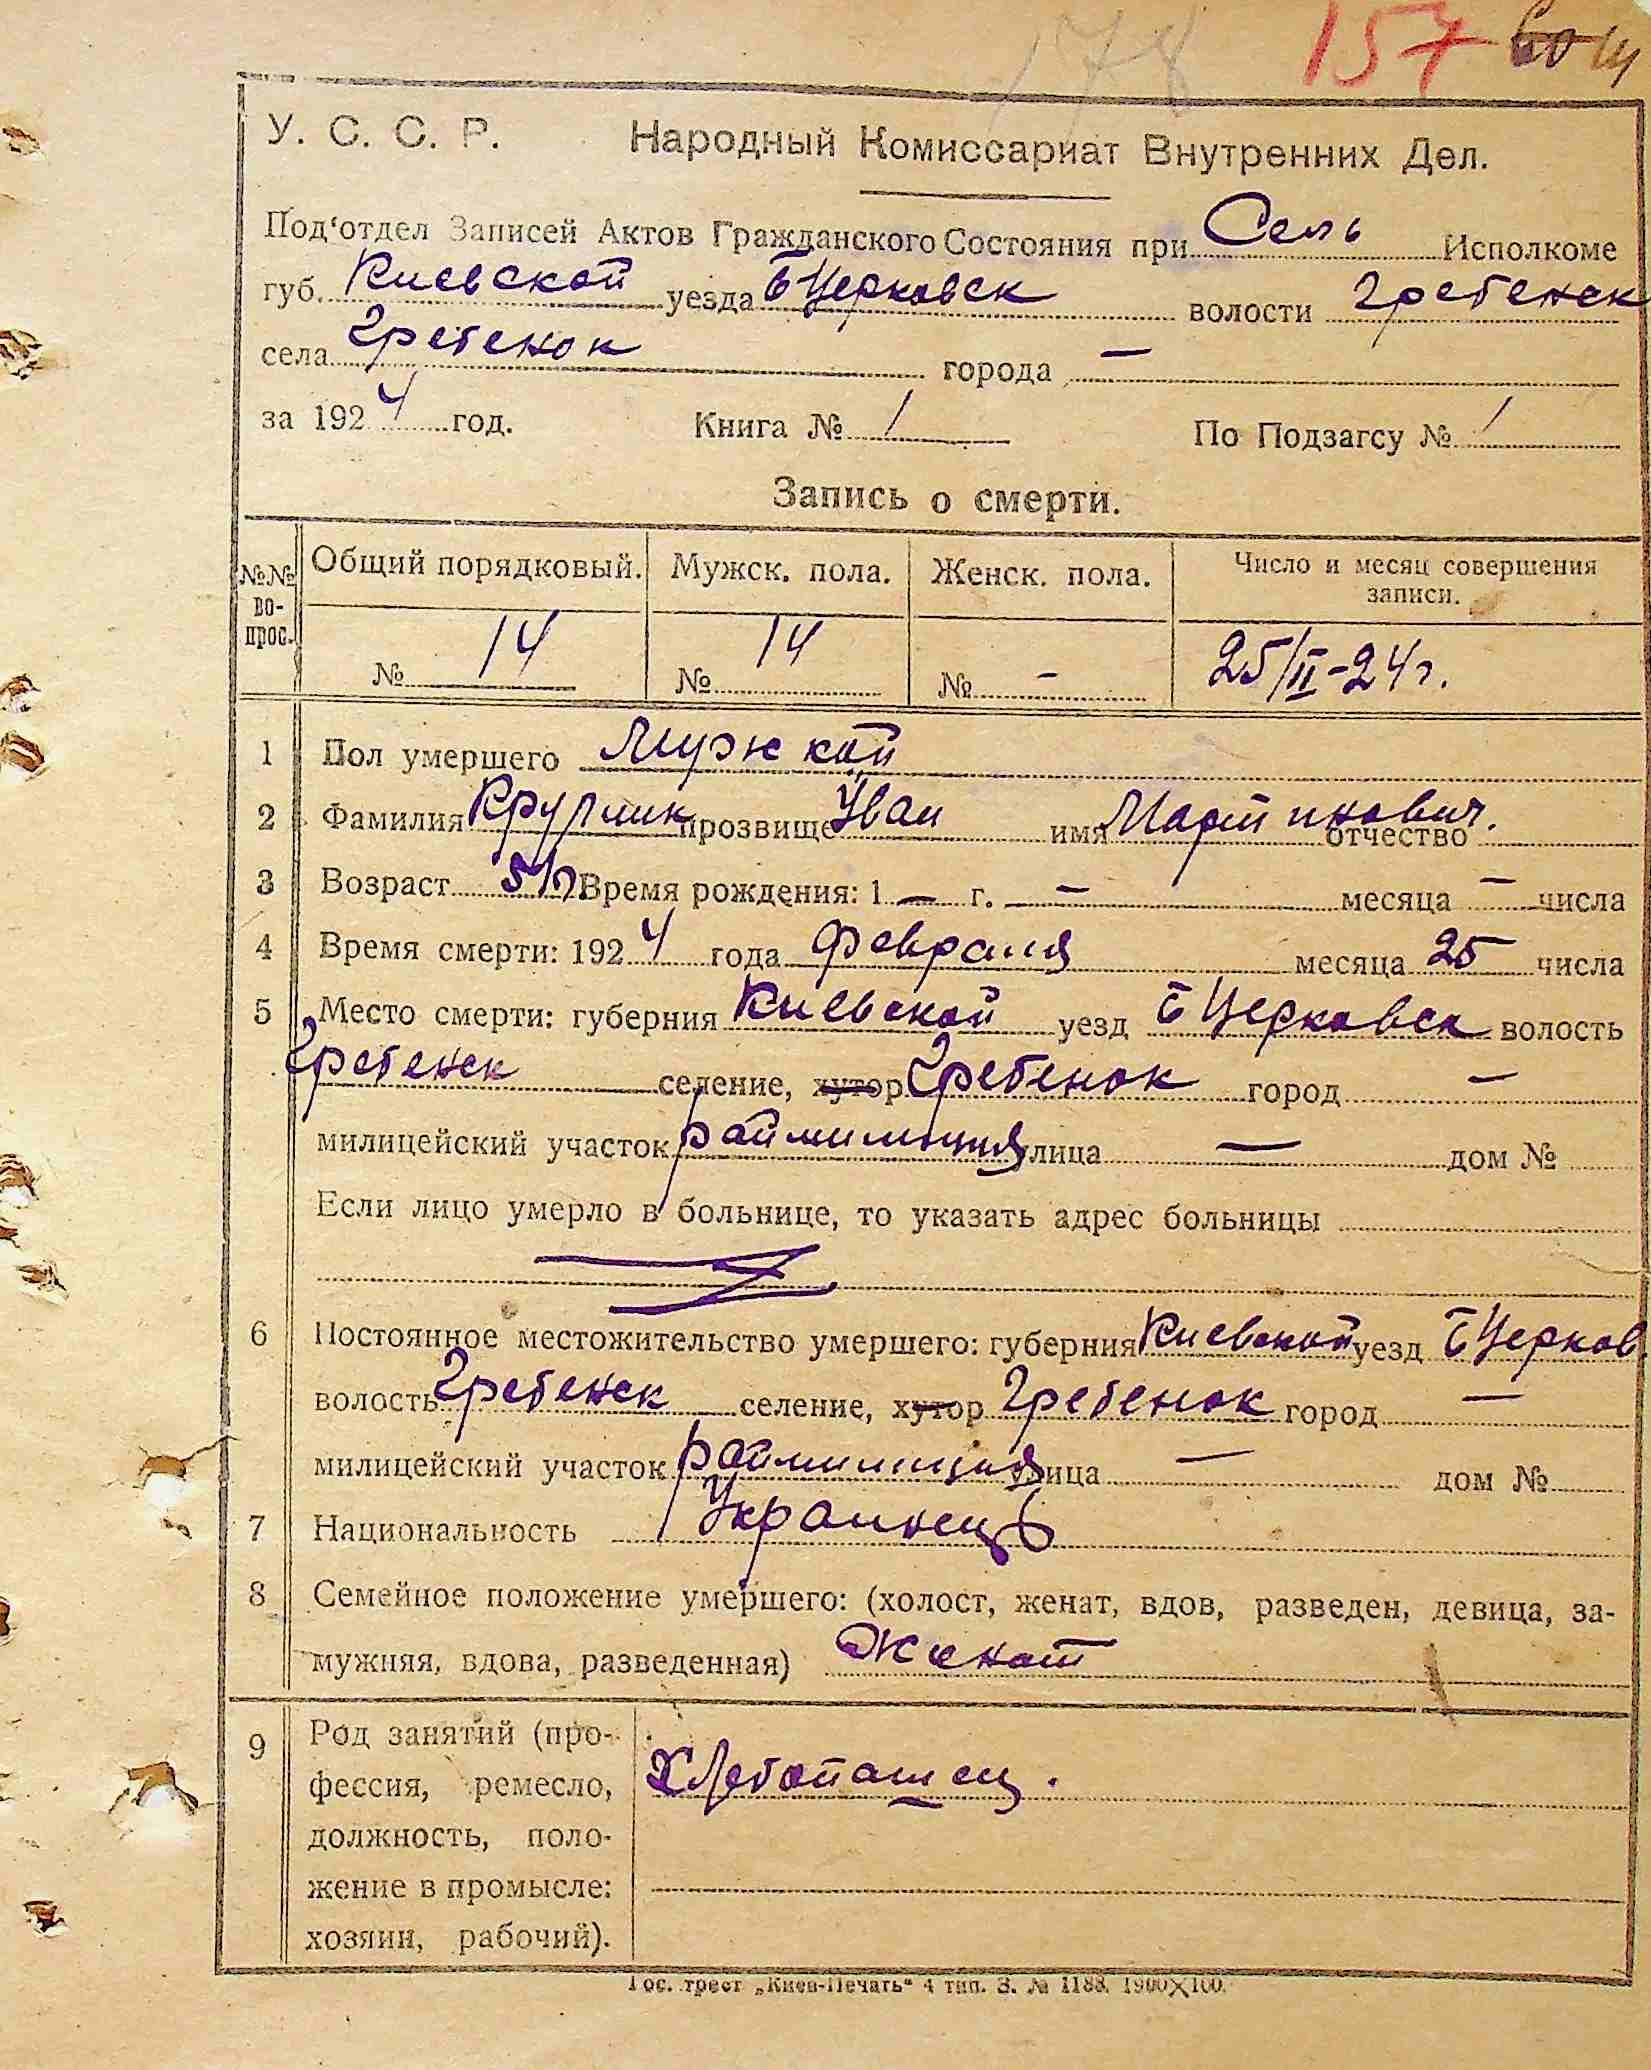 178 157
У. С. С. Р. Народный Комиссариат Внутренних Дел.
Под'отдел Записей Актов Гражданского Состояния при Сель Исполкоме
губ. Киевской уезда БЦерковск волости Гребенск
села Гребенок города —
за 1924 год. Книга № 1 По Подзагсу № 1
Запись о смерти.
№№ во-прос. Общий порядковый. Мужск. пола. Женск. пола. Число и месяц совершения
записи.
№ 14 № 14 № - 25/II-24 г.
1 Пол умершего Мужской
2 Фамилия прозвище Иван имя Мартинович. отчество
3 Возраст Время рождения: 1 — г. — месяца — числа
4 Время смерти: 1924 года февраля месяца 25 числа
5 Место смерти: губерния Киевской уезд БЦерковск волость
Гребенск селение, хутор Гребенок город —
милицейский участок раймилиция улица — дом №
Если лицо умерло в больнице, то указать адрес больницы
6 Постоянное местожительство умершего: губерния Киевской уезд БЦерков
волость Гребенск селение, хутор Гребенок город —
милицейский участок раймилиция улица — дом №
7 Национальность Украинец
8 Семейное положение умершего: (холост, женат, вдов, разведен, девица, за-
мужняя, вдова, разведенная) Женат
9 Род занятий (про-
фессия, ремесло, Хлебопашец.
должность, поло-
жение в промысле:
хозяин, рабочий).
Гос. трест „Киев-Печать“ 4 тип. З. № 1188. 1900×100.